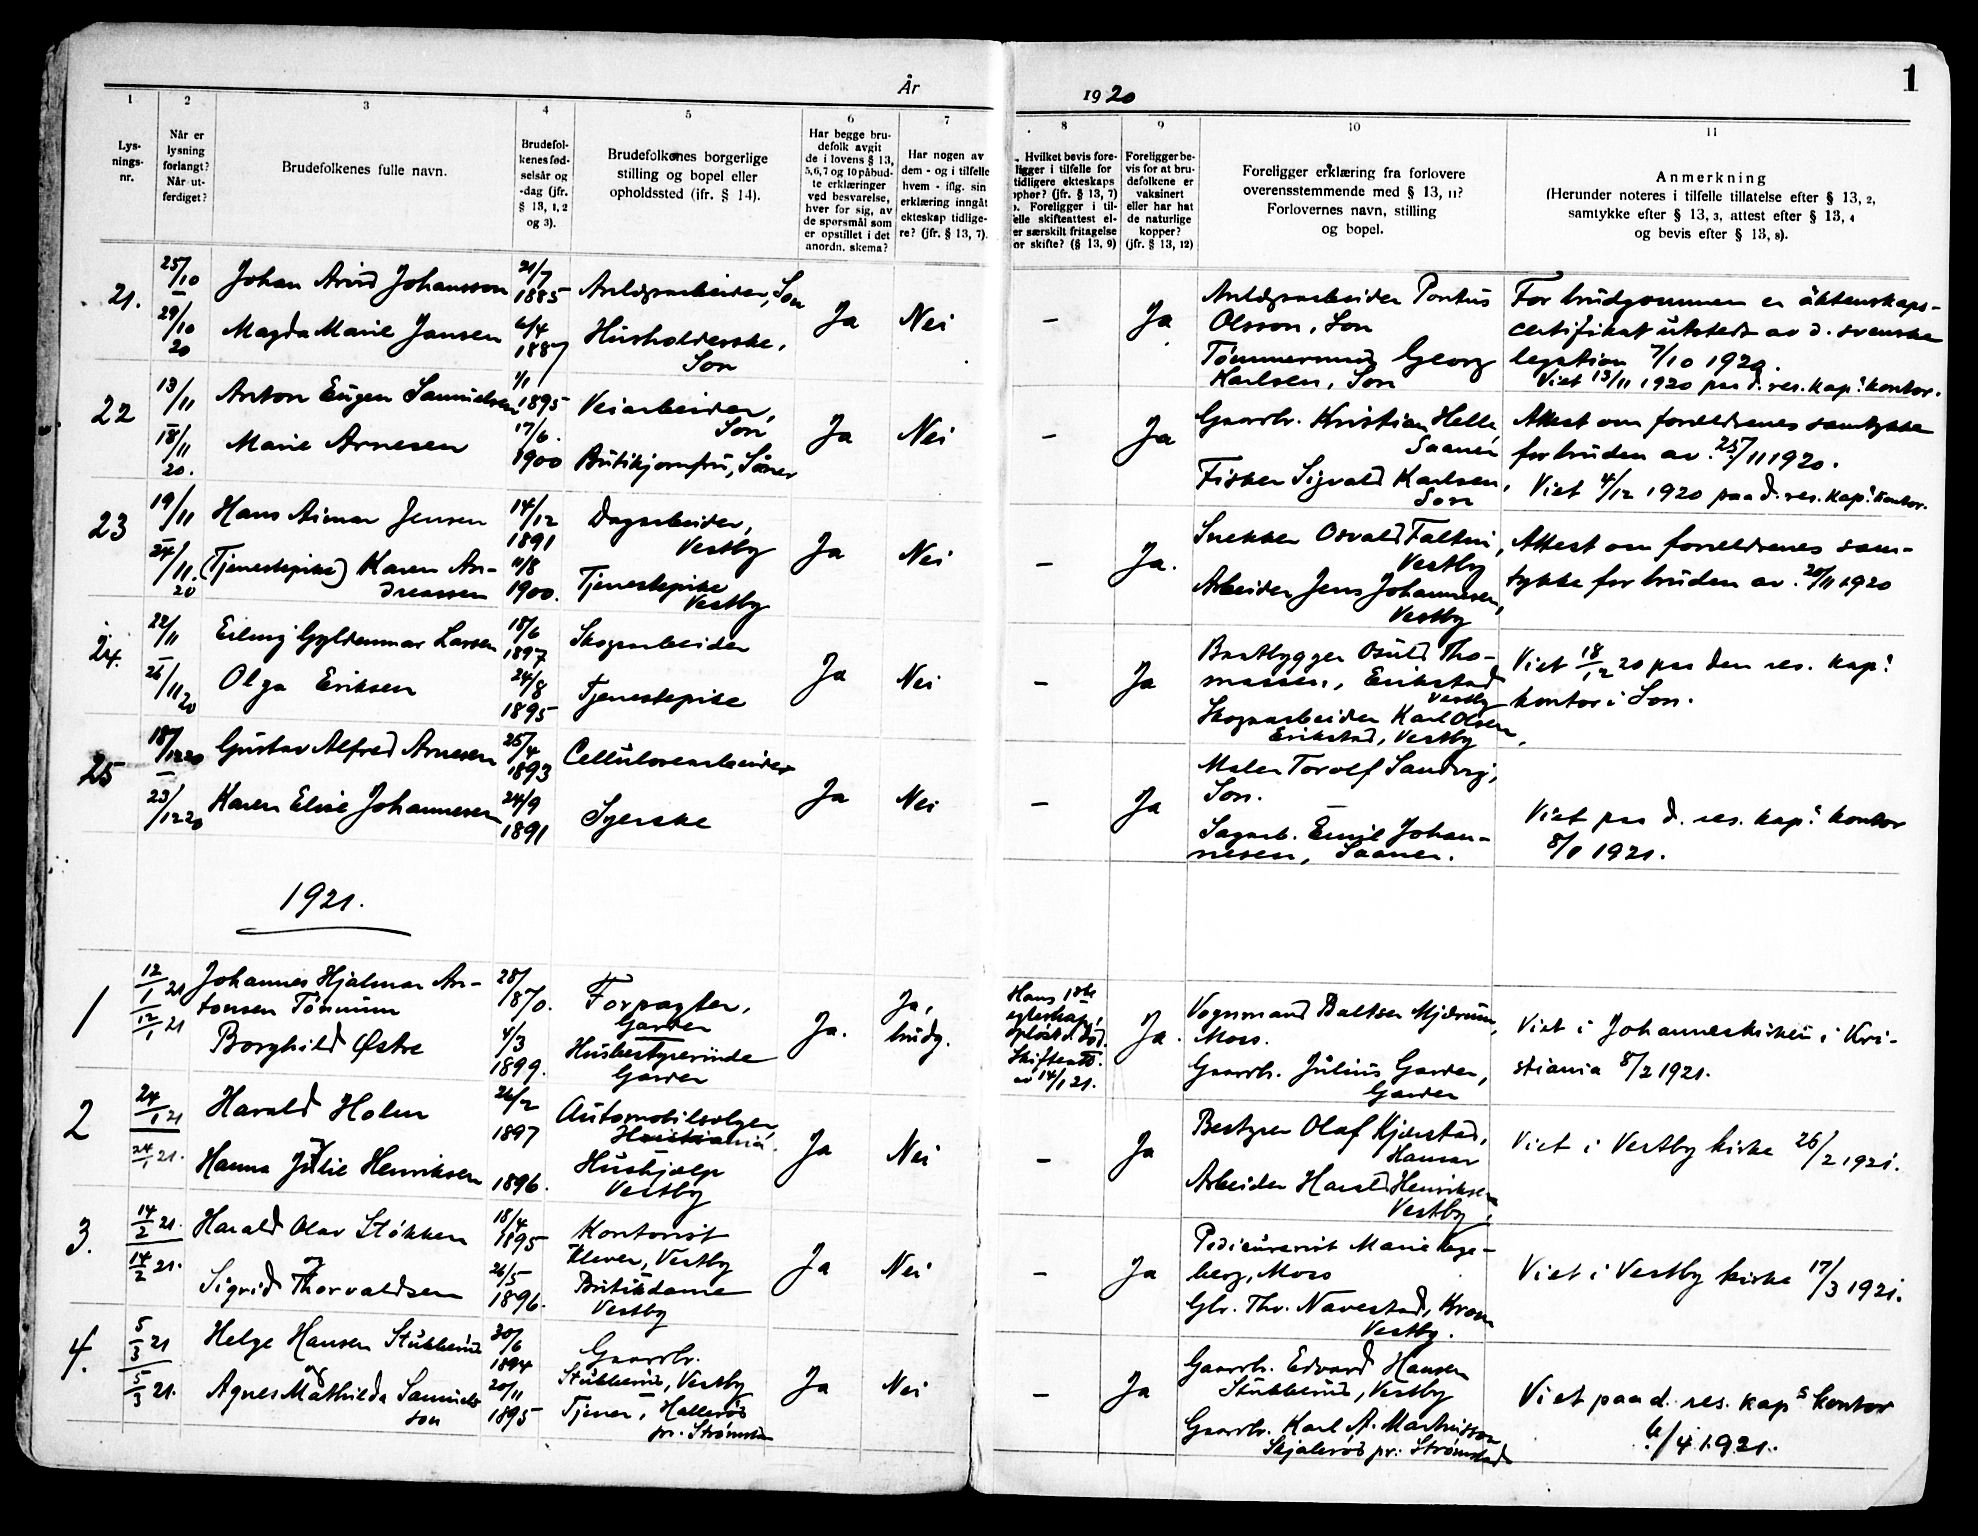 År 1920
1
1
2
3
4
5
6
7
8
9
10
11
Lys-
nings-
nr.
Når er
lysning
forlangt?
Når ut-
ferdiget?
Brudefolkenes fulle navn.
Brudefol-
kenes fød-
selsår og
-dag (jfr.
§ 13, 1, 2
og 3).
Brudefolkenes borgerlige
stilling og bopel eller
opholdssted (ifr. § 14).
Har begge bru-
defolk avgit
de i lovens § 13,
5, 6, 7 og 10 påbud-
te erklæringer
ved besvarelse,
hver for sig, av
de spørsmål som
er opstillet i det
anordn. skema?
Har nogen av
dem - og i tilfelle
hvem - iflg. sin
erklæring inngåt
ekteskap tidlige-
re? (jfr. § 13, 7).
Hvilket bevis fore-
ligger i tilfelle for
tidligere ekteskaps
ophør? (jfr. § 13, 7)
Foreligger i til-
felle skifteattest el-
er særskilt fritagelse
for skifte? (§ 13, 9)
Foreligger be-
vis for at bru-
defolkene er
vaksinert
eller har hat
de naturlige
kopper?
(jfr. § 13, 12)
Foreligger erklæring fra forlovere
overensstemmende med § 13, 11?
Forlovernes navn, stilling
og bopel.
Anmerkning
(Herunder noteres i tilfelle tillatelse efter § 13, 2,
samtykke efter § 13, 3, attest efter § 13, 4
og bevis efter § 13, 8).
21.
25/10
29/10
20
Johan Arvid Johansson
Magda Marie Jansen
21/7
1885
6/4
1887
Anlægsarbeider, Son
Husholderske,
Son
Ja
Nei
–
Ja
Anlægsarbeider Pontus
Olsson, Son
Tømmermand Georg
Karlsen, Son
For brudgommen er äktenskaps-
certifikat utstedt av d. svenske
legation 7/10 1920.
Viet 13/11 1920 paa d. res. kap! kontor.
22
13/11
18/11
20.
Anton Eugen Samuelsen
Marie Arnesen
1/1
1895
17/6.
1900
Veiarbeider,
Son
Butikjomfru, Såner
Ja
Nei
–
Ja
Gaardbr. Kristian Helle
Saaner
Fisker Sigvald Karlsen,
Son
Attest om forældrenes samtykke
for bruden av 25/11 1920.
Viet 4/12 1920 paa d. res. kap! kontor.
23
19/11
24/11.
20
Hans Aimar Jensen
(Tjenestepike) Karen An-
dreassen
14/12
1891
11/8
1900.
Dagarbeider,
Vestby
Tjenestepike
Vestby
Ja
Nei
–
Ja.
Snekker Osvald Faltin,
Vestby
Arbeider Jens Johannesen,
Vestby
Attest om forældrenes sam-
tykke for bruden av 20/11 1920
24.
22/11
26/11 20
Eilung Gyldenmar Larsen
Olga Eriksen
18/6
1897
24/8
1895
Skogsarbeider
Tjenestepike
Ja
Nei
–
Ja
Baatbygger Osuld Tho-
massen, Erikstad
Vestby
Skogsarbeider Karl Olsen,
Erikstad, Vestby
Viet 18/12 20 paa den res. kap!
kontor i Son.
25
18/12 20
23/12 20
Gustav Alfred Arnesen
Karen Elise Johannesen
25/4
1893
24/9
1891
Cellulosearbeider
Syerske
Ja
Nei
–
Ja
Maler Torolf Sandvig,
Son.
Sagarb. Emil Johan-
nesen, Saaner.
Viet paa d. res. kap! kontor
8/1 1921.
1921.
1
12/1 21
12/1 21
Johannes Hjalmar An-
tonsen Tømmum
Borghild Østre
28/
1870.
4/3
1899.
Forpagter,
Garder
Husbestyrerinde
Garder
Ja.
Ja,
brudg.
Hans 1ste
egteskap
opløst d. død.
Skifteatt.
av 14/1 21.
Ja.
Vognmand Baltser Mjærum,
Moss.
Gaardbr. Julius Garder,
Garder
Viet i Johanneskirken i Kri-
stiania 8/2 1921.
2
24/1 21
24/1 21.
Harald Holm
og
Hanna Julie Henriksen
26/2
1897
1896.
Automobileier
Kristiania.
Hushjælp
Vestby
Ja
Nei
–
Ja
Bestyrer Olaf Kjærstad,
Hamar
Arbeider Harald Henriksen
Vestby.
Viet i Vestby kirke 26/2 1921.
3.
14/2 21.
14/2 21.
Harald Olav Støkken
og
Sigrid Thorvaldsen
18/4
1895
26/5
1896.
Kontorist
Klever, Vestby
Butikdame
Vestby
Ja
Nei
–
Ja
Pedicurerist Marie Lege-
berg, Moss
Gbr. Thv. Navestad, Krom
Vestby.
Viet i Vestby kirke 17/3 1921.
4.
5/3 21
5/3 21.
Helge Hansen Stubberud
og
Agnes Mathilda Samuels-
son
30/6
1894
20/11
1895
Gaardbr.
Stubberud, Vestby
Tjener, Hallerød
pr. Strømstad
Ja
Nei
–
Ja
Gaardbr. Edvard Hansen
Stubberud, Vestby
Gaardbr. Karl A. Martinsson
Skjalerød pr. Strømstad
Viet paa d. res. kaps kontor
6/4 1921.